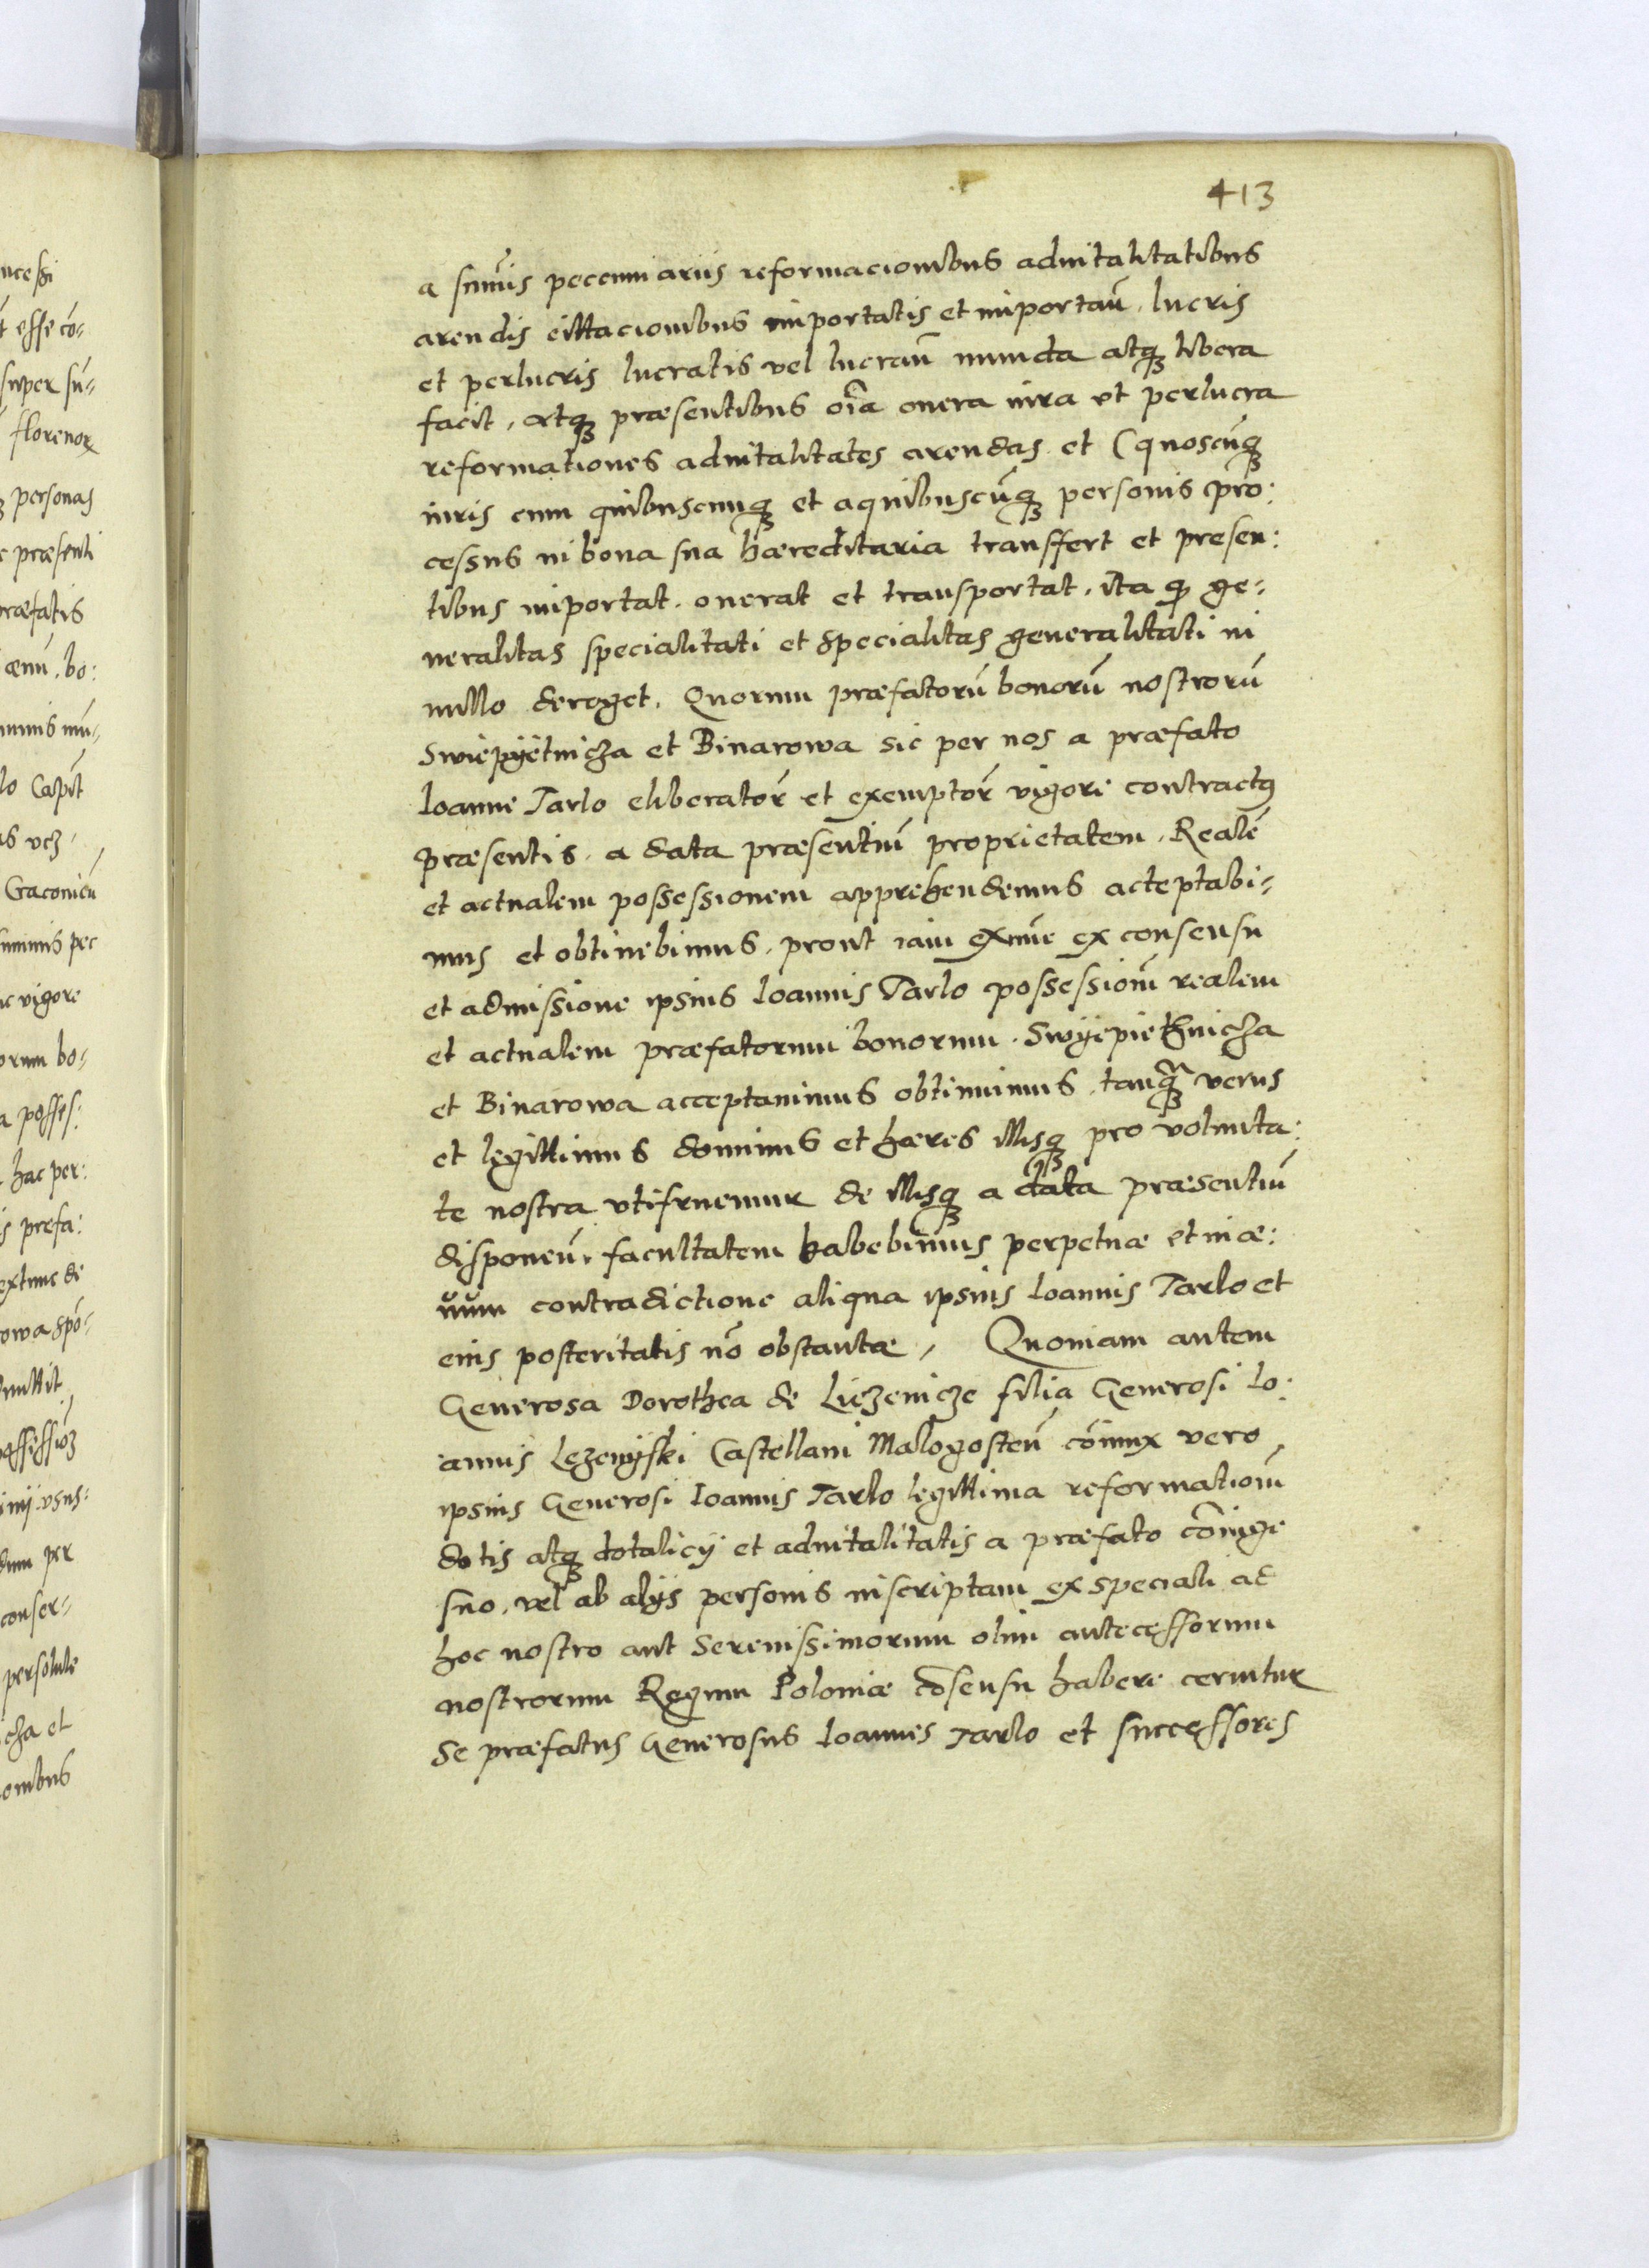 413
a sum̄is peccuniarus reformacionibus aduitalitatibus
arendis cittacionibus importatis et importan̄. lucris
et perlucris lucratis vel lucran̄ munda atq₃ libera
facit, atq₃ præsentibus oīa onera iura ut perlucra
reformationes aduitalitates arendas et (quoscūq₃
iuris cum quibuscunq₃ et aquibuscūq₃ personis pro:
cessus in bona sua hæreditaria transffert et presen:
tibus importat. onerat et transportat, ita qȝ ge-
neralitas specialitati et specialitas generalitati in
nullo deroget. Quorum præfatorū bonorū nostrorū
Swiepyetnicza et Binarowa sic per nos a præfato
Ioanne Tarlo eliberator̄ et exemptor̄ vigore contractus
præsentis. a data præsentiū proprietatem. Realē
et actualem possessionem apprehendemus acceptabi-
mus et obtinebimus. prout iam exnūc ex consensu
et admissione ipsius Ioannis Tarlo possessionē realem
et actualem præfatorum bonorum. Swyepiethnicza
et Binarowa acceptauimus obtinuimus. tanq̄₃ verus
et legittimus dominus et hæres illisq₃ pro volunta:
te nostra vtifruemur de illisq₃ a data præsentiū
disponen̄. facultatem habebimus perpetuæ et in æ:
uum contradictione aliqua ipsius Ioannis Tarlo et
eius posteritatis nō obstantæ, Quoniam autem
Generosa Dorothea de Liezenicze filia Generosi Io:
annis Lezenyski Castellani Malogosten̄ cōiunx vero
ipsius Generosi Ioannis Tarlo legittima reformationē
dotis atq₃ dotalicÿ et aduitalitatis a præfato cōiuge
suo, vel ab alÿs personis inscriptam ex speciali ad
hoc nostro aut Serenissimorum olim antecessorum
nostrorum Regum Poloniæ cōsensu habere cernitur
Se præfatus Generosus Ioannes Tarlo et successores